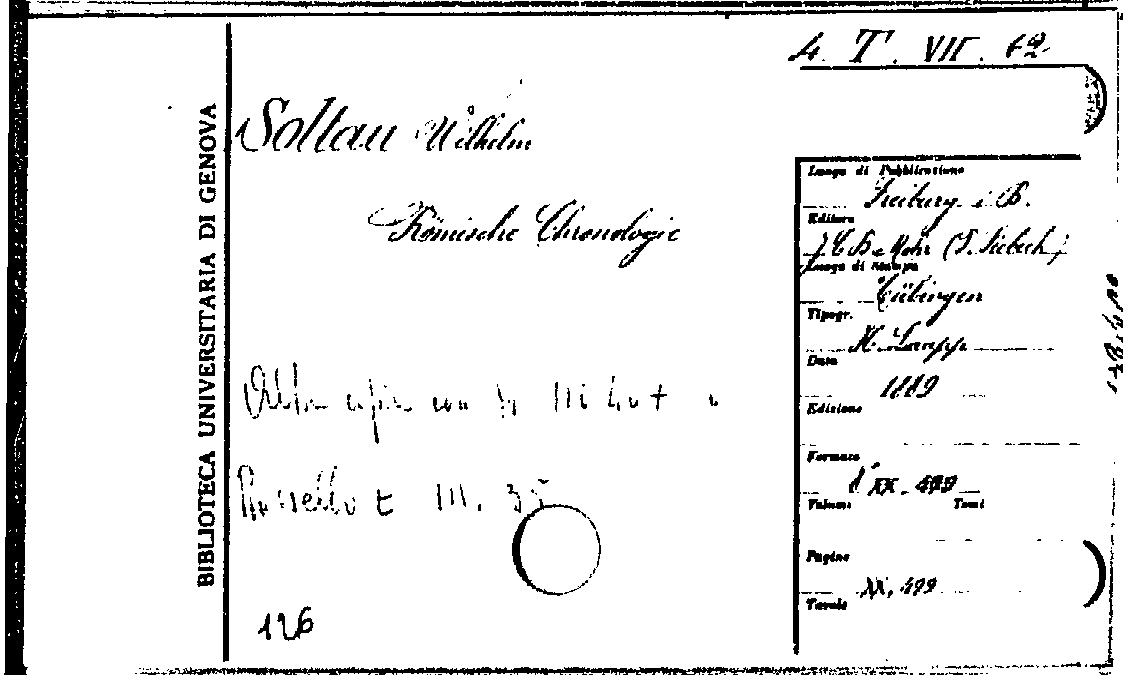 4. T. VII. 62
BIBLIOTECA UNIVERSITARIA DI GENOVA
Soltau Wilhelm
Römische Chronologie
Altra copia con
Rossello E III. 35
126
Luogo di Pubblicazione
Freiburg i B.
Editore
J C B Mohr (P. Siebeck)
Luogo di Stampa
Tübingen
Tipogr.
H. Laupp
Data
1889
Edizione
Formato
8° XX. 499
Volumi Tomi
Pagine
XX, 499
Tavole